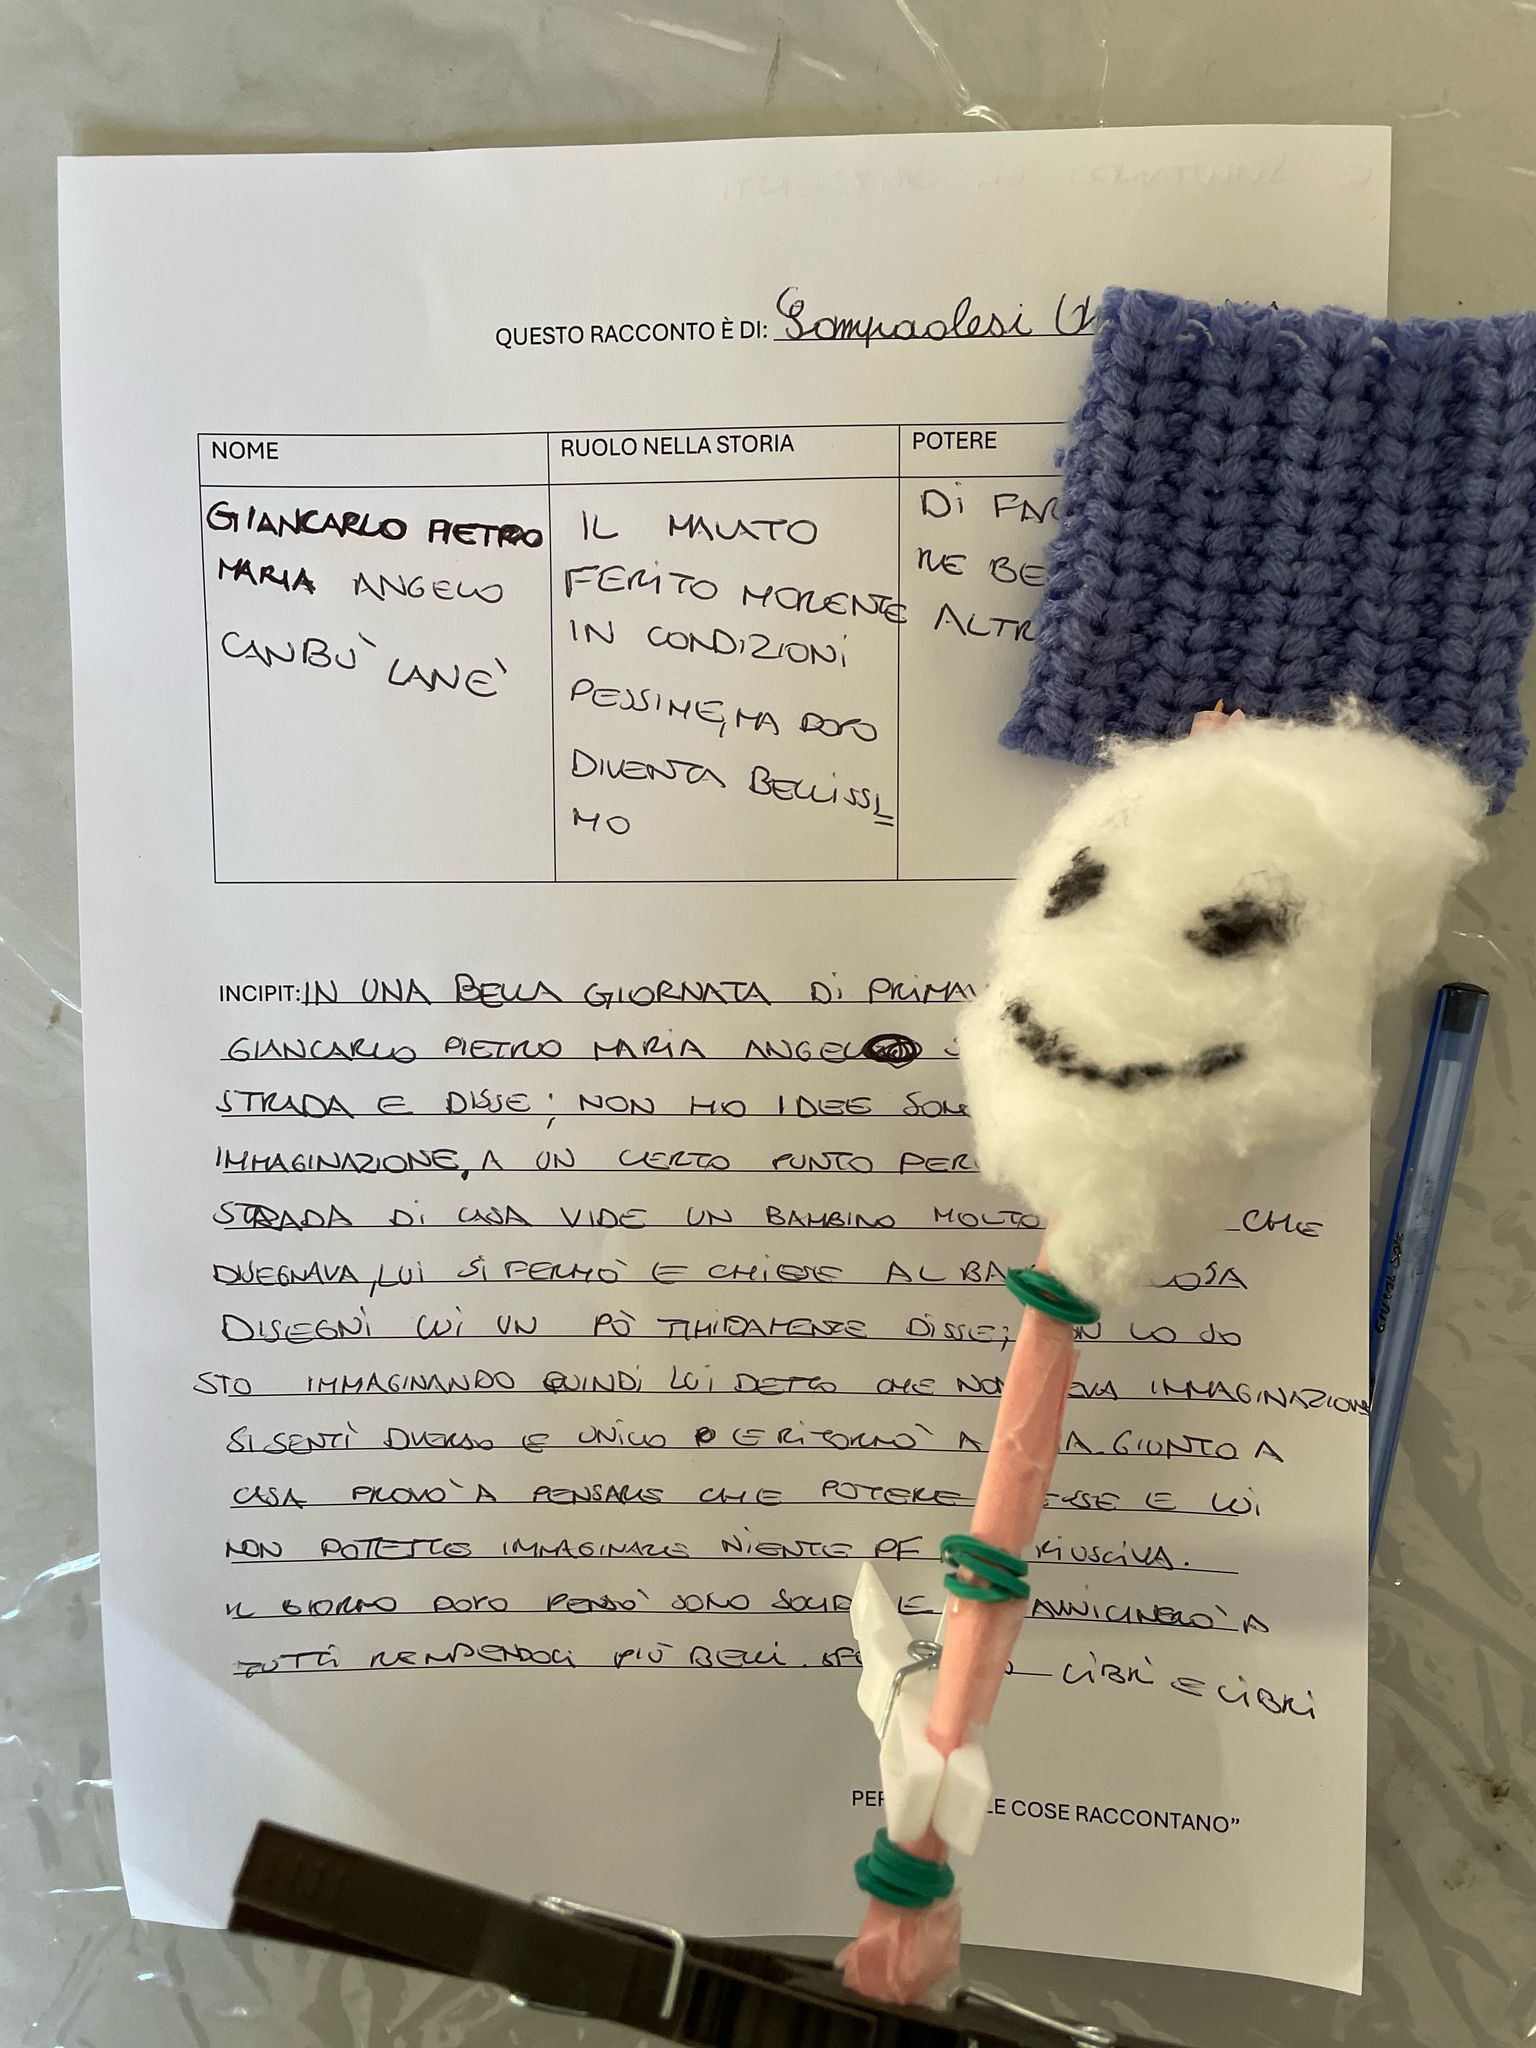 QUESTO RACCONTO È DI: Sampaolesi
NOME
RUOLO NELLA STORIA
POTERE
GIANCARLO PIETRO
MARIA ANGELO
CANBÙ LANÈ
IL MALATO
FERITO MORENTE
IN CONDIZIONI
PESSIME, MA DOPO
DIVENTA BELLISSI
MO
DI FAR
RE BE
ALTR
INCIPIT: IN UNA BELLA GIORNATA DI PRIMAV
GIANCARLO PIETRO MARIA ANGELO
STRADA E DISSE; NON HO IDEE SON
IMMAGINAZIONE, A UN CERTO PUNTO PER
STRADA DI CASA VIDE UN BAMBINO MOLTO CHE
DISEGNAVA, LUI SI FERMÒ E CHIESE AL BA OSA
DISEGNI LUI UN PÒ TIMIDAMENTE DISSE; ON LO SO
STO IMMAGINANDO QUINDI LUI DETTO CHE NON EVA IMMAGINAZIONE
SI SENTÌ DIVERSO E UNICO E RITORNÒ A A. GIUNTO A
CASA PROVÒ A PENSARE CHE POTERE ESSE E LUI
NON POTETTE IMMAGINARE NIENTE PE RIUSCIVA.
IL GIORNO DOPO PENSÒ SONO SOLID E AVVICINERÒ A
TUTTI RENDENDOCI PIÙ BELLI. LIBRI E LIBRI
PER LE COSE RACCONTANO”